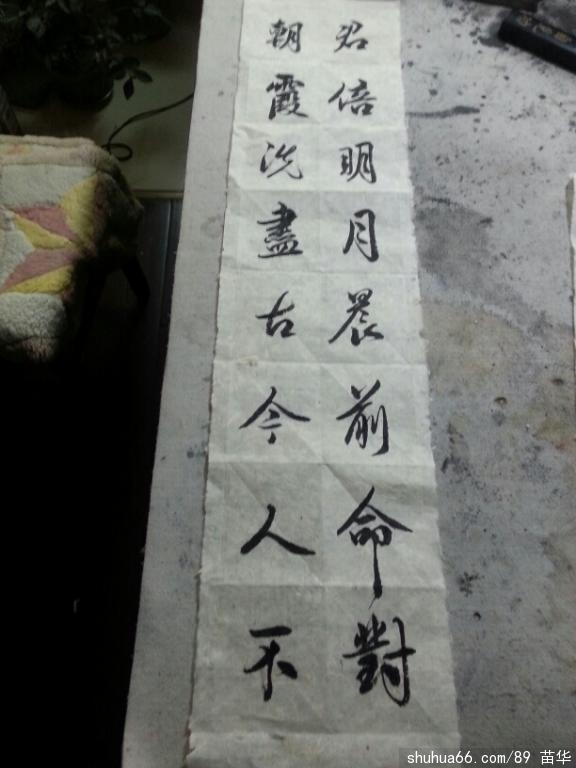 君倍明月晨前命對
朝霞洗盡古今人不
shuhua66.com/89 苗华